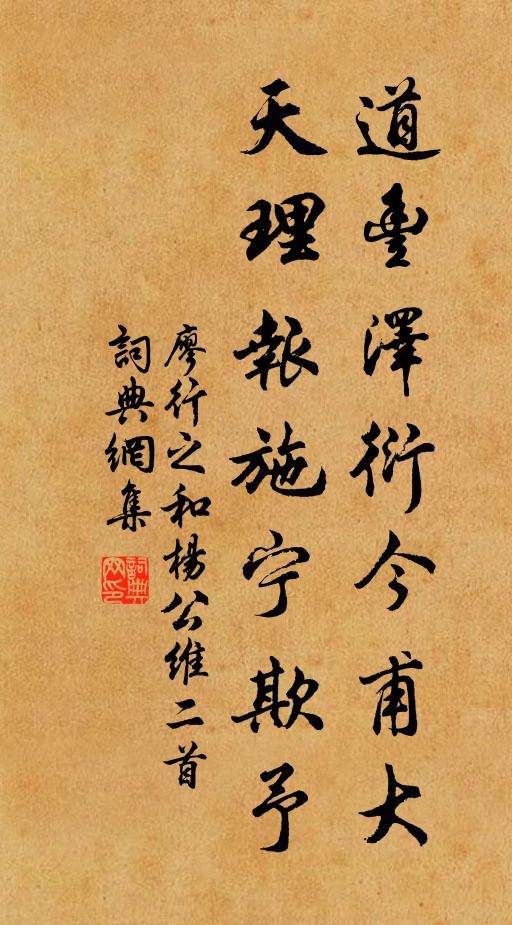 道豐澤衍今甫大
天理報施宁欺予
廖行之和楊公維二首
詞典網集
詞典网印